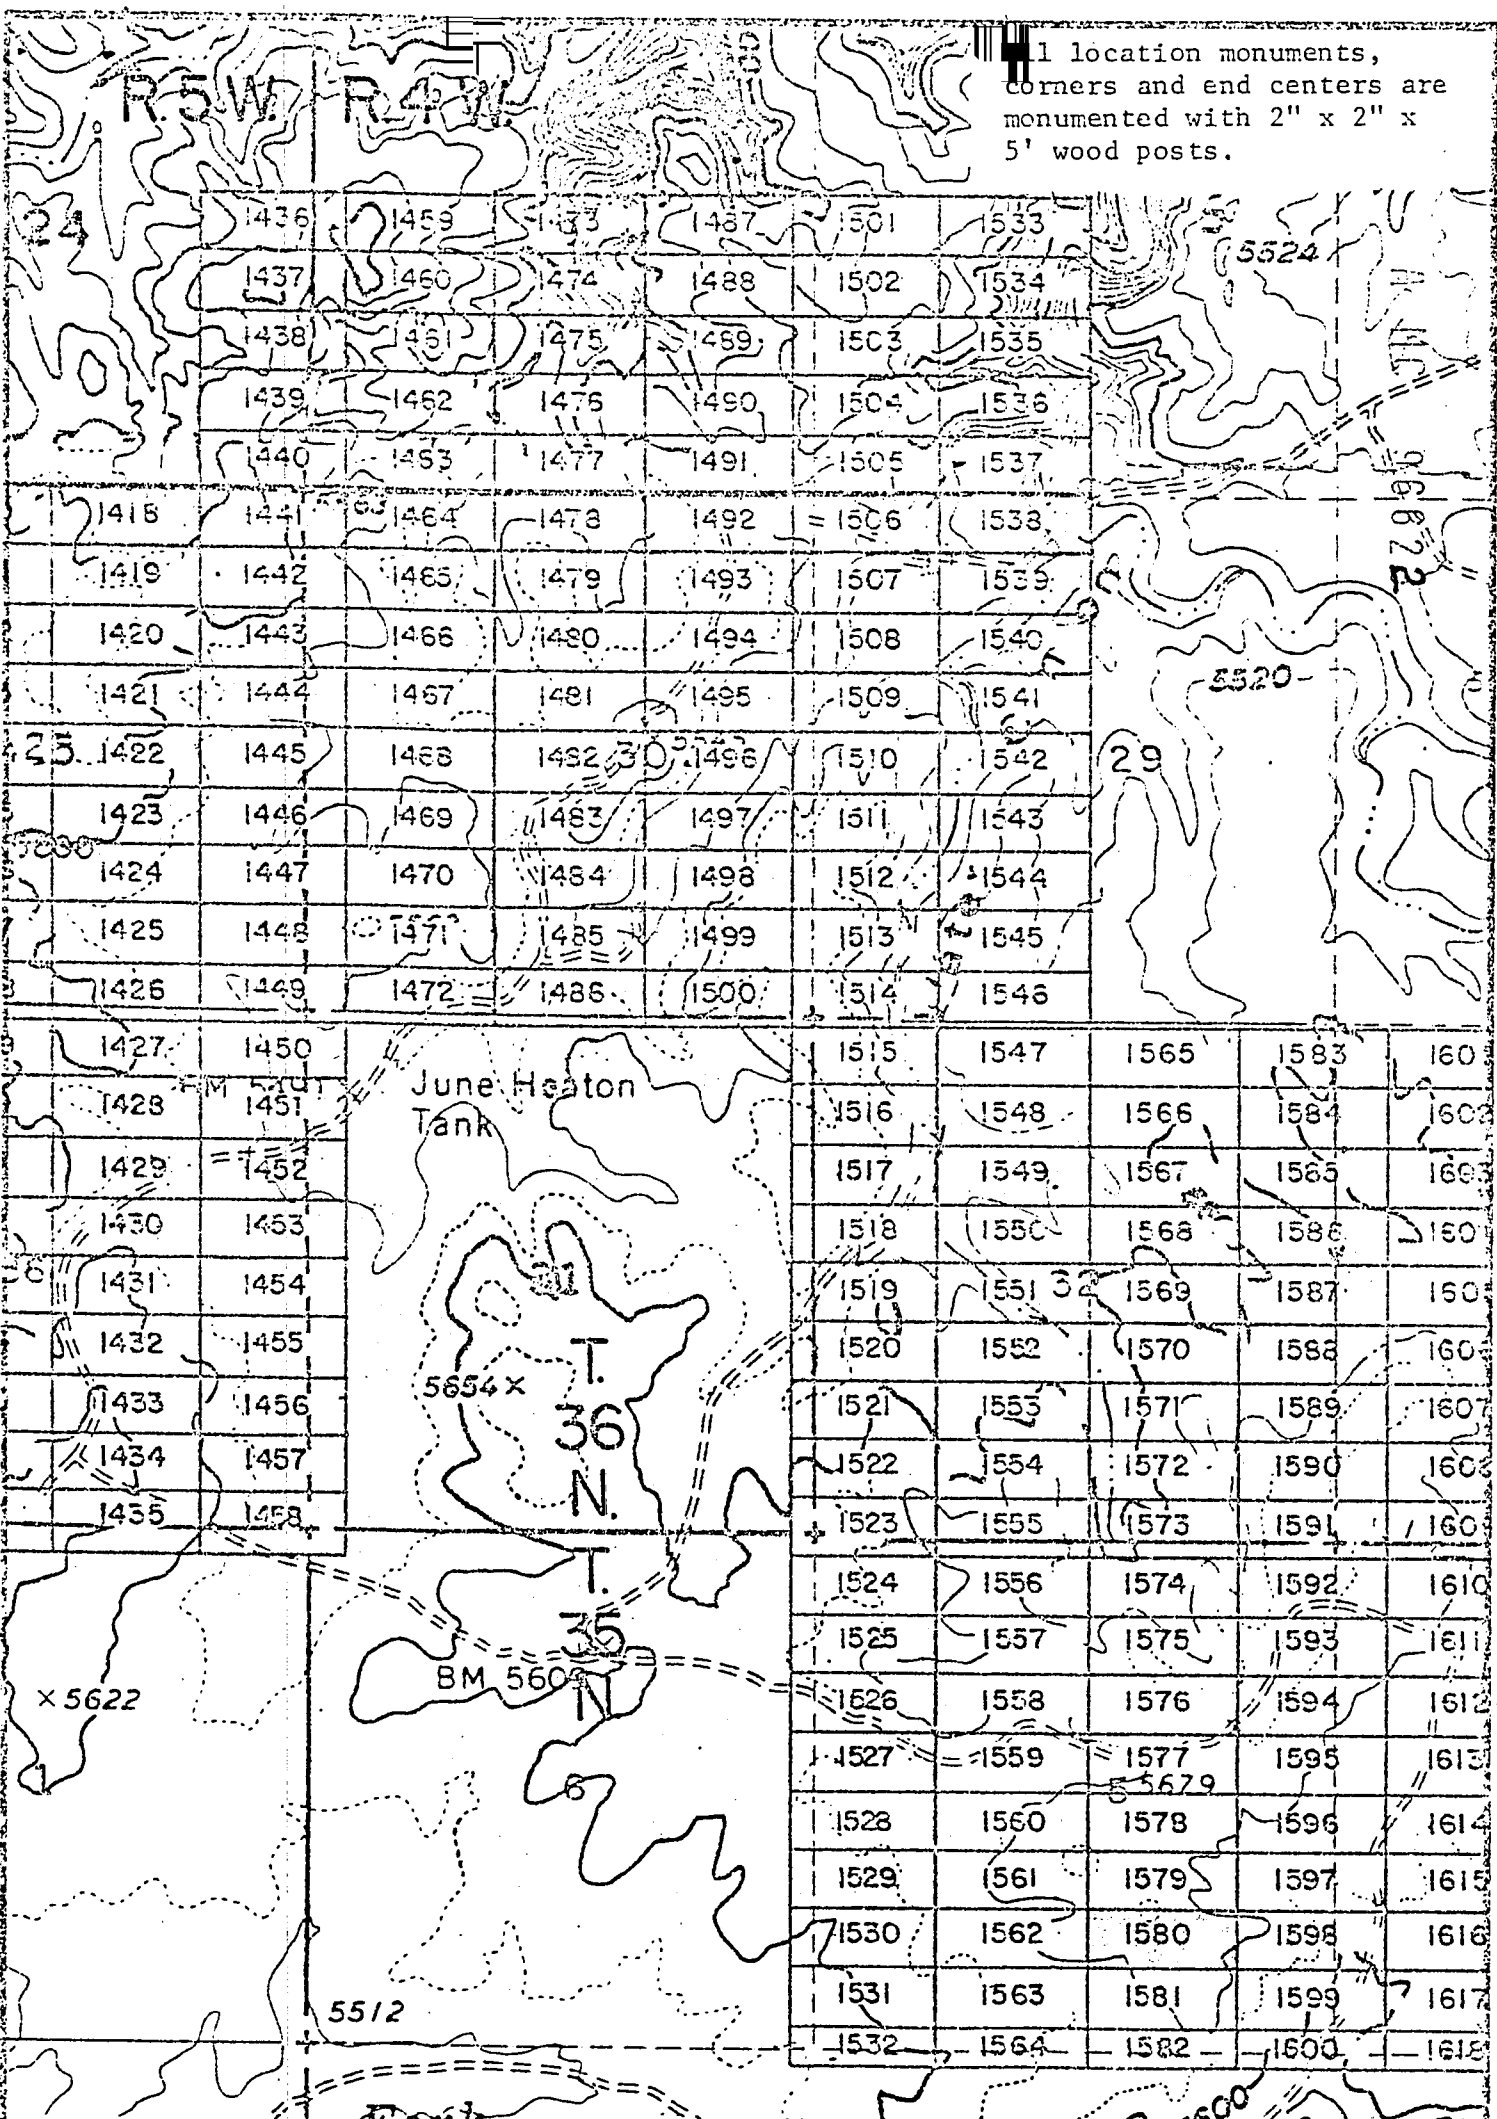 ll location monuments,
corners and end centers are
monumented with 2" x 2" x
5' wood posts.
R.5W. R.4W.
24 1436 1459 1473 1487 1501 1533
5524
1437 1460 1474 1488 1502 1534
1438 1461 1475 1489 1503 1535
1439 1462 1476 1490 1504 1536
1440 1463 1477 1491 1505 1537
1418 1441 1464 1478 1492 1506 1538
1419 1442 1465 1479 1493 1507 1539
1420 1443 1466 1480 1494 1508 1540
1421 1444 1467 1481 1495 1509 1541
5520
25 1422 1445 1468 1482 30 1496 1510 1542 29
1423 1446 1469 1483 1497 1511 1543
1424 1447 1470 1484 1498 1512 1544
1425 1448 1471 1485 1499 1513 1545
1426 1449 1472 1486 1500 1514 1546
1427 1450 1515 1547 1565 1583 160
June Heaton
Tank
1428 1451 1516 1548 1566 1584 1602
1429 1452 1517 1549 1567 1585 1603
1430 1453 1518 1550 1568 1586 160
1431 1454 31 1519 1551 32 1569 1587 160
1432 1455 1520 1552 1570 1588 160
5654
T.
36
N.
1433 1456 1521 1553 1571 1589 1607
1434 1457 1522 1554 1572 1590 1608
1435 1458 1523 1555 1573 1591 160
T.
35
N
1524 1556 1574 1592 1610
1525 1557 1575 1593 1611
BM 560
×5622 1526 1558 1576 1594 1612
1527 1559 1577 1595 1613
1 6 5 5679
1528 1560 1578 1596 1614
1529 1561 1579 1597 1615
1530 1562 1580 1598 1616
1531 1563 1581 1599 1617
5512
1532 1564 1582 1600 1618